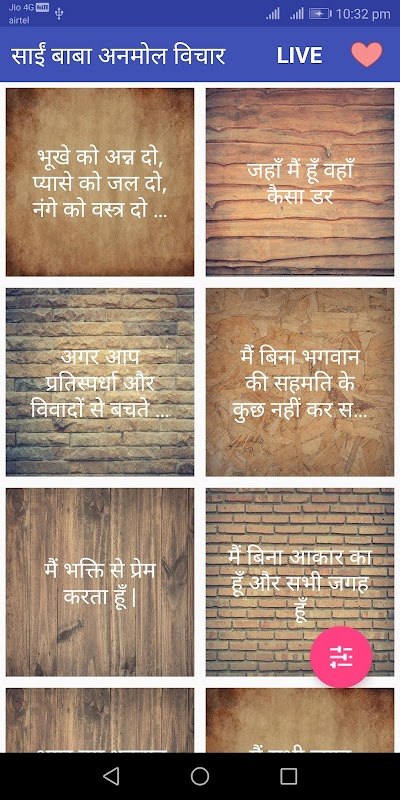 Jio 4G VoLTE
airtel
10:32 pm
साईं बाबा अनमोल विचार
LIVE
भूखे को अन्न दो,
प्यासे को जल दो,
नंगे को वस्त्र दो ...
जहाँ मैं हूँ वहाँ
कैसा डर
अगर आप
प्रतिस्पर्धा और
विवादों से बचते ...
मैं बिना भगवान
की सहमति के
कुछ नहीं कर स...
मैं भक्ति से प्रेम
करता हूँ |
मैं बिना आकार का
हूँ और सभी जगह
हूँ